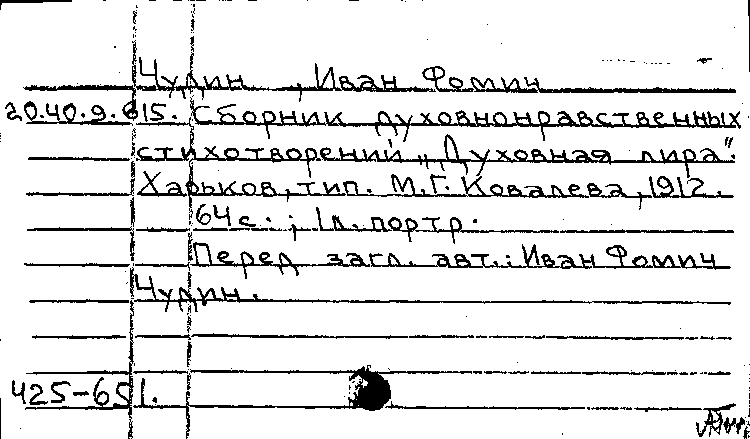 Чудин , Иван Фомич
20.40.9.615. Сборник духовнонравственных
стихотворений „Духовная лира".
Харьков, тип. М.Г. Ковалева, 1912.
64 с. ; 1 л. портр.
Перед загл. авт.: Иван Фомич
Чудин.
425-651.